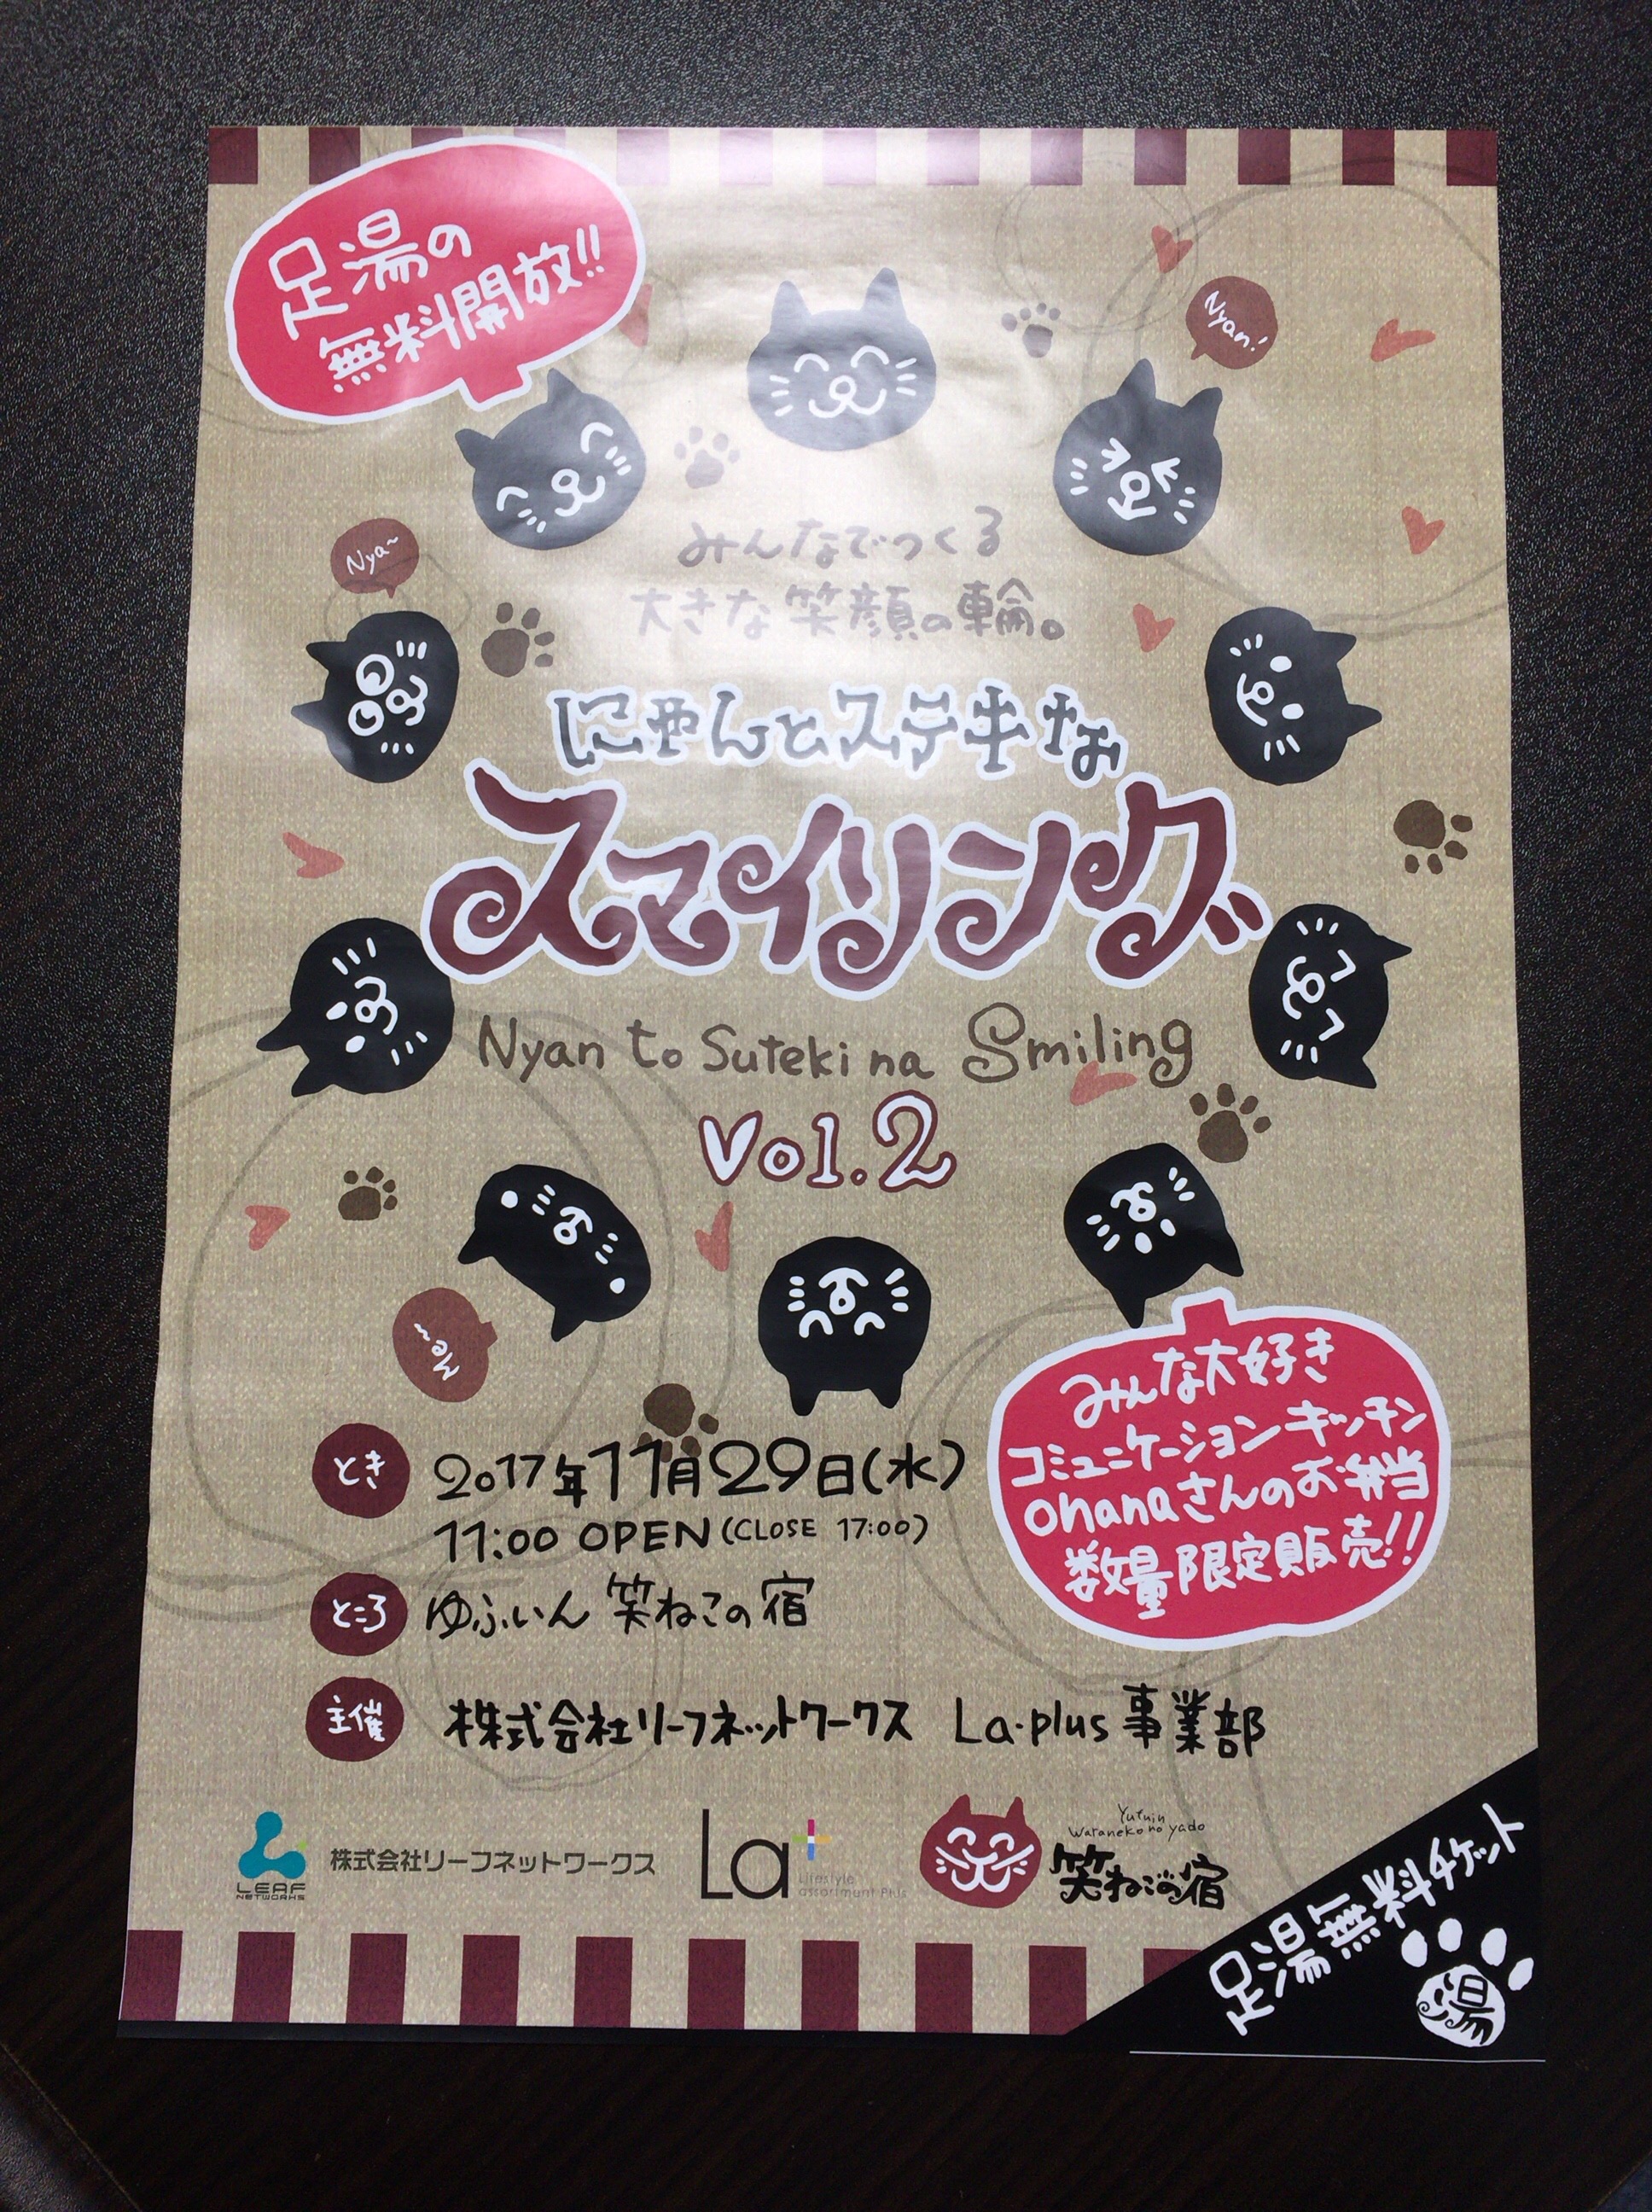 足湯の
無料開放!!
Nyan!
Nya~
みんなでつくる
大きな笑顔の輪。
にゃんとステキな
スマイリング
Nyan to Suteki na Smiling
Vol.2
Me~
みんな大好き
コミュニケーションキッチン
ohanaさんのお弁当
数量限定販売!!
とき 2017年11月29日(水)
11:00 OPEN (CLOSE 17:00)
ところ ゆふいん 笑ねこの宿
主催 株式会社リーフネットワークス La・plus事業部
LEAF
NETWORKS
株式会社リーフネットワークス
La+
Lifestyle
assortment Plus
Yufuin
Waraneko no yado
笑ねこの宿
足湯無料チケット
湯